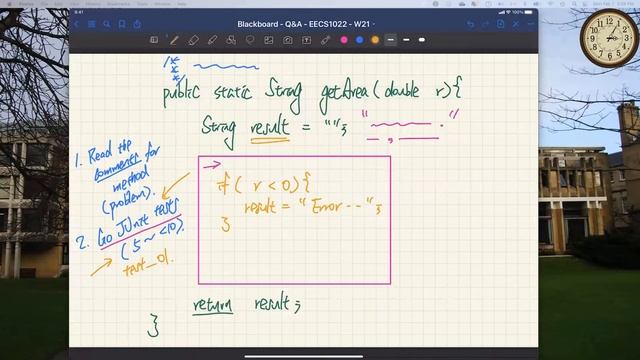 9:41
Blackboard - Q&A - EECS1022 - W21
100%
/*
*
*/
public static String getArea(double r){
String result = "";
" . "
,
1. Read the
comments for
method
(problem).
2. Go JUnit tests
(5 ~ <10).
test_01.
if( r < 0){
result = "Error --";
}
return result;
}